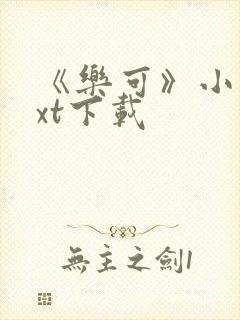 《樂可》小
xt下載
無主之劍1